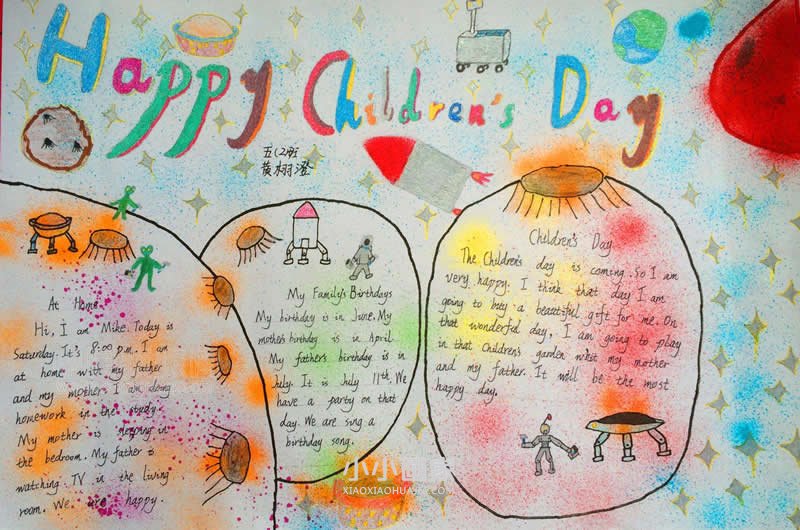 Happy Children's Day
五(2)班
黄栩澄
At Home
Hi, I am Mike. Today is
Saturday. It's 8:00 p.m. I am
at home with my father
and my mother. I am doing
homework in the study.
My mother is sleeping in
the bedroom. My father is
watching TV in the living
room. We are happy.
My Family's Birthdays
My birthday is in June. My
mother's birthday is in April.
My father's birthday is in
July. It is July 11th. We
have a party on that
day. We are sung a
birthday song.
Children's Day
The Children's day is coming. So I am
very happy. I think that day I am
going to buy a beautiful gift for me. On
that wonderful day, I am going to play
in that Children's garden whit my mother
and my father. It will be the most
happy day.
XIAOXIAOHUA.COM